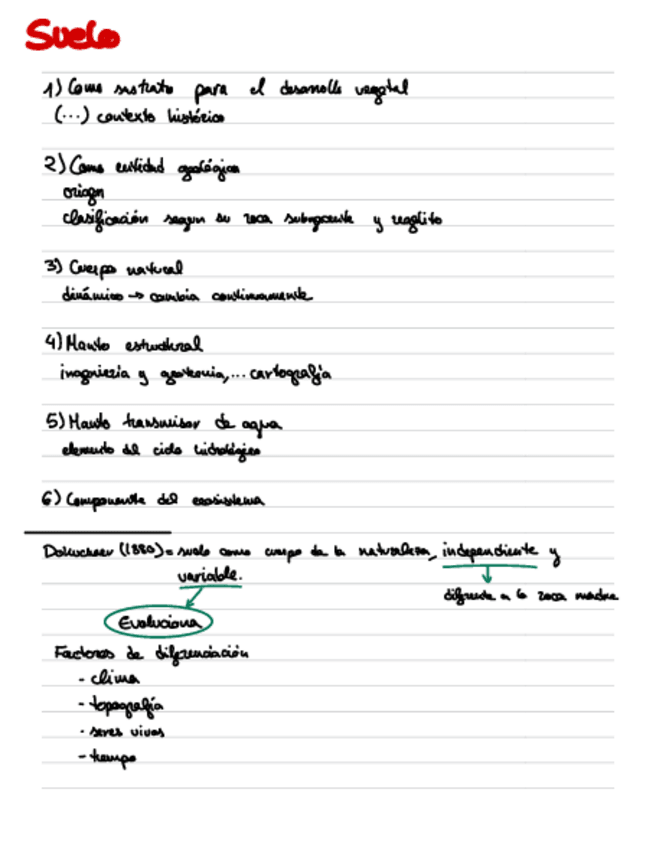 Suelo
1) Como sustrato para el desarrollo vegetal
(...) contexto histórico
2) Como entidad geológica
origen
clasificación segun su roca subyacente y regolito
3) Cuerpo natural
dinámico → cambia continuamente
4) Manto estructural
ingeniería y geotecnia,... cartografía
5) Manto transmisor de agua
elemento del ciclo hidrológico
6) Componente del ecosistema
Dokuchaev (1880) = suelo como cuerpo de la naturaleza, independiente y
variable.
diferente a la roca madre
Evoluciona
Factores de diferenciación
- clima
- topografía
- seres vivos
- tiempo